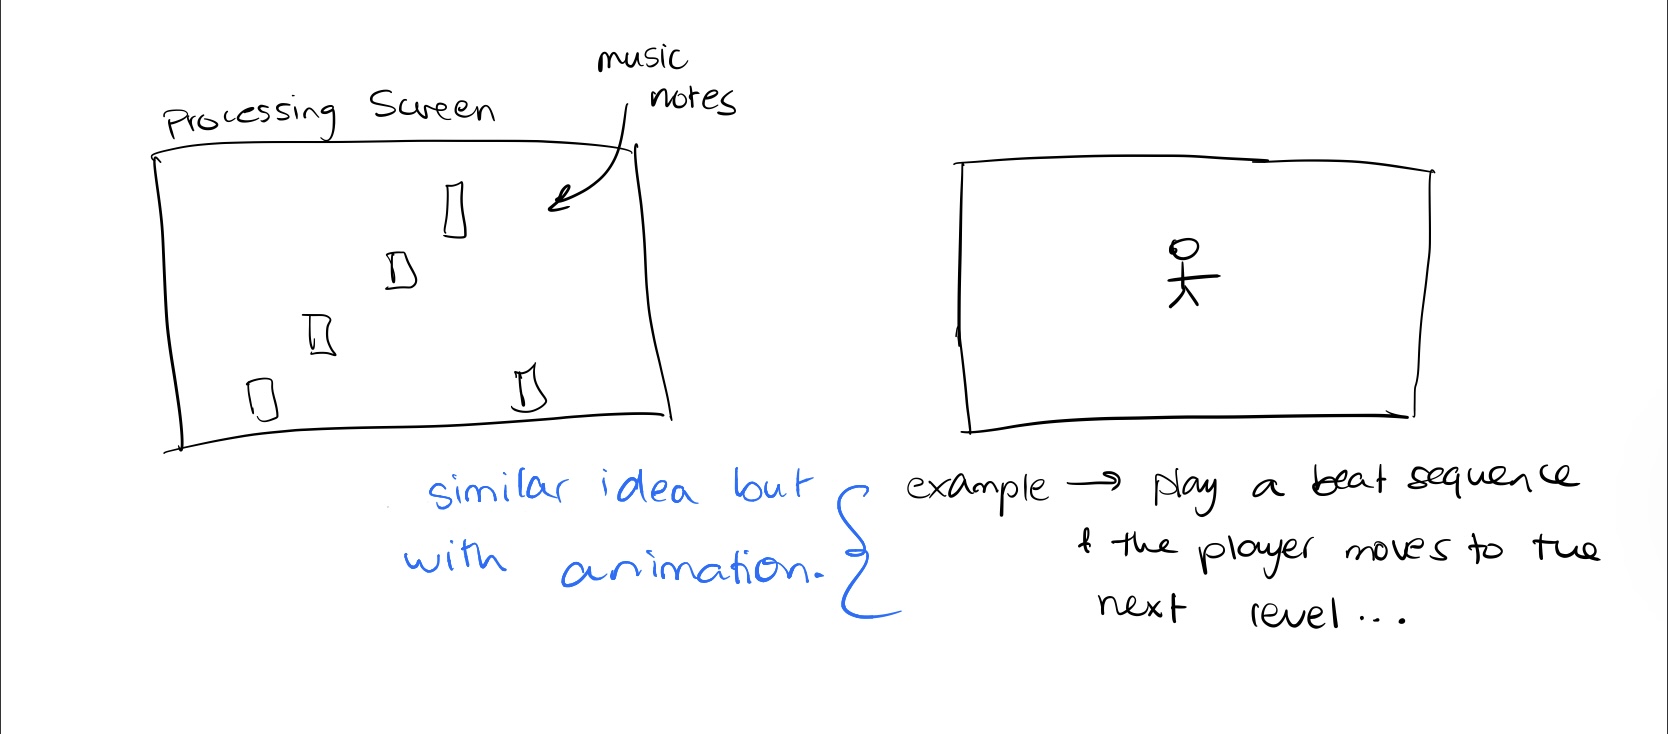 music
notes
Processing Screen
similar idea but
with animation.
example → play a beat sequence
& the player moves to the
next level...